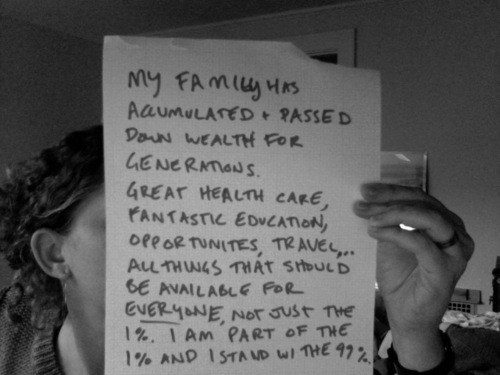 MY FAMILY HAS
ACCUMULATED + PASSED
DOWN WEALTH FOR
GENERATIONS.
GREAT HEALTH CARE,
FANTASTIC EDUCATION,
OPPORTUNITES, TRAVEL,...
ALL THINGS THAT SHOULD
BE AVAILABLE FOR
EVERYONE, NOT JUST THE
1%. I AM PART OF THE
1% AND I STAND W/ THE 99%.